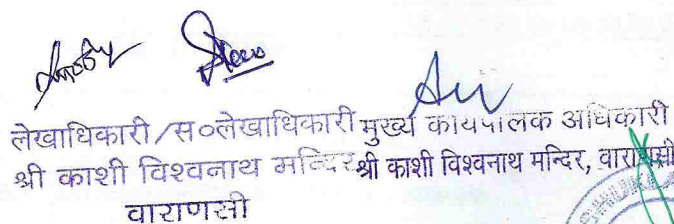 लेखाधिकारी/स०लेखाधिकारी
श्री काशी विश्वनाथ मन्दिर
वाराणसी
मुख्य कार्यपालक अधिकारी
श्री काशी विश्वनाथ मन्दिर, वाराणसी
SHUKLA